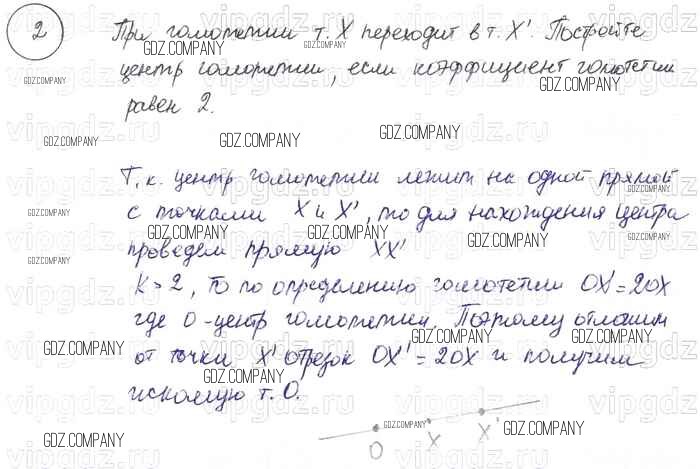 2
При гомотетии т. X переходит в т. X'. Постройте
центр гомотетии, если коэффициент гомотетии
равен 2.
Т.к. центр гомотетии лежит на одной прямой
с точками X и X', то для нахождения центра
проведем прямую XX'
K = 2, то по определению гомотетии OX' = 2OX
где O - центр гомотетии. Поэтому отложим
от точки X' отрезок OX' = 2OX и получим
искомую т. O.
O X X'
GDZ.COMPANY
vipgdz.ru